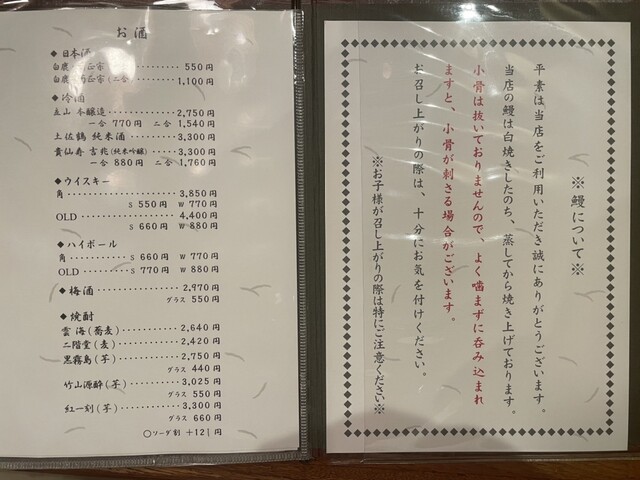 お酒
◆日本酒
白鹿 正宗 ・・・・・・・・・・ 550円
白鹿 正宗(二合) ・・・・・ 1,100円
◆冷酒
立山 本醸造 ・・・・・・・・・ 2,750円
一合 770円 二合 1,540円
土佐鶴 純米酒 ・・・・・・・ 3,300円
貴仙寿 吉兆(純米吟醸) ・・・・ 3,300円
一合 880円 二合 1,760円
◆ウイスキー
角 ・・・・・・・・・・・・・・・・ 3,850円
S 550円 W 770円
OLD ・・・・・・・・・・・・・・ 4,400円
S 660円 W 880円
◆ハイボール
角 ・・・・・・・・ S 660円 W 770円
OLD ・・・・・・ S 770円 W 880円
◆梅酒 ・・・・・・・・・・・・・ 2,970円
グラス 550円
◆焼酎
雲海(蕎麦) ・・・・・・・・・ 2,640円
二階堂(麦) ・・・・・・・・・ 2,420円
黒霧島(芋) ・・・・・・・・・ 2,750円
グラス 440円
竹山源酔(芋) ・・・・・・・ 3,025円
グラス 550円
紅一刻(芋) ・・・・・・・・・ 3,300円
グラス 660円
○ソーダ割 +121円
※鰻について※
平素は当店をご利用いただき誠にありがとうございます。
当店の鰻は白焼きしたのち、蒸してから焼き上げております。
小骨は抜いておりませんので、よく噛まずに呑み込まれ
ますと、小骨が刺さる場合がございます。
お召し上がりの際は、十分にお気を付けください。
※お子様が召し上がりの際は特にご注意ください※